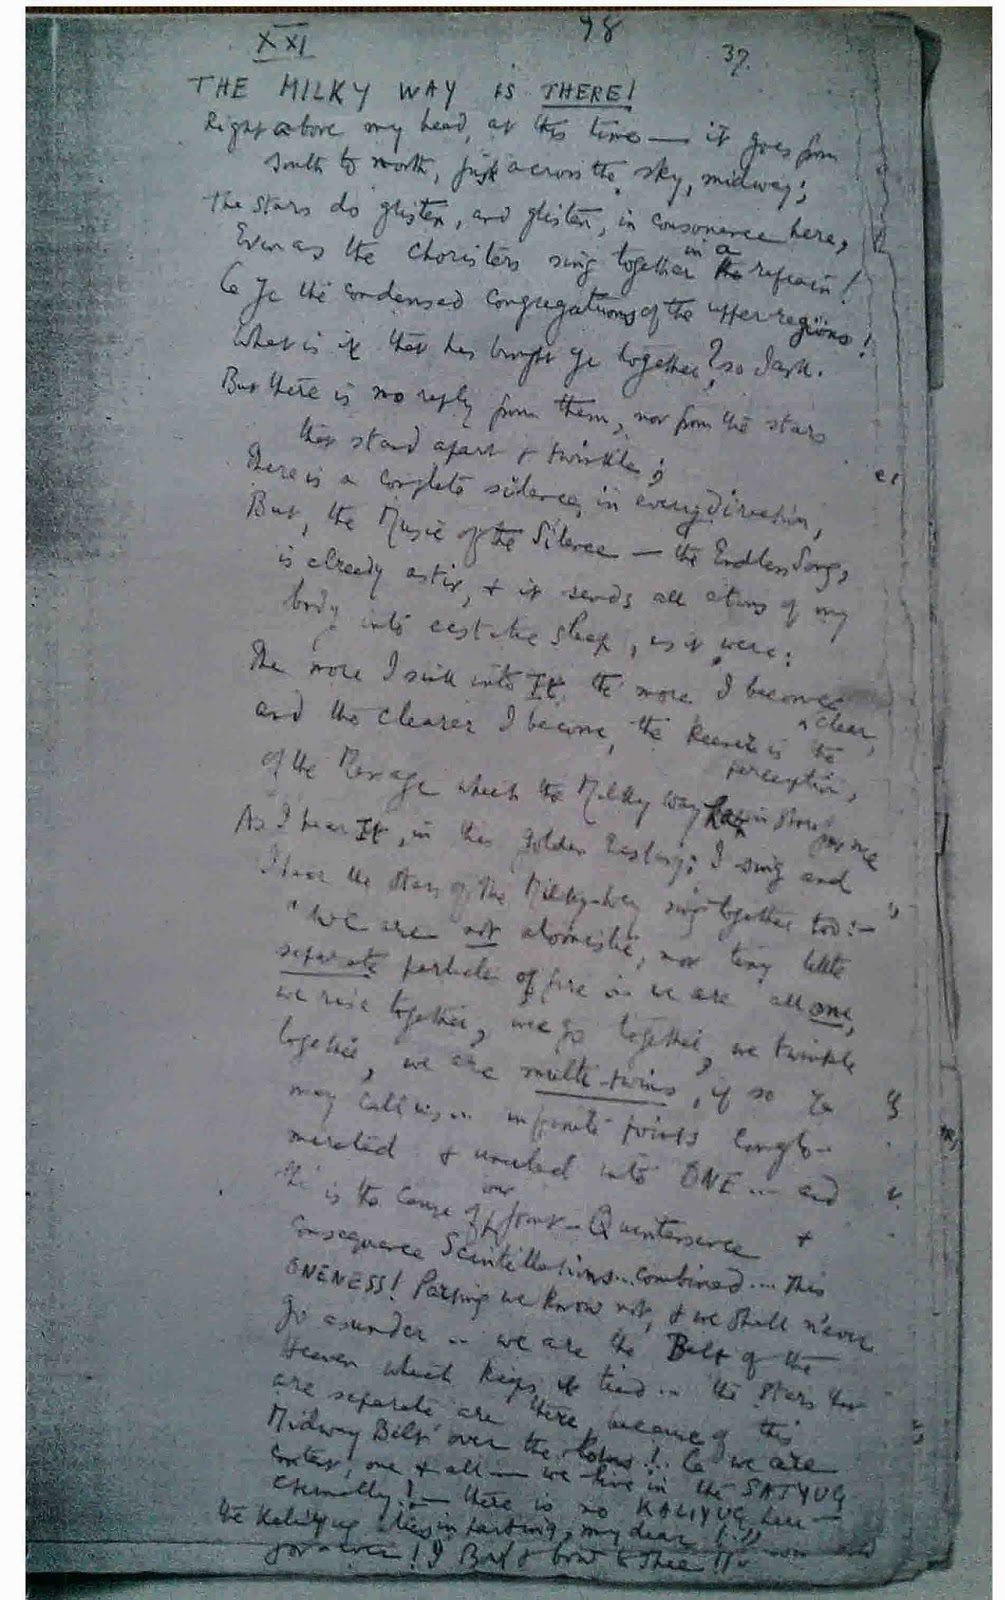 XXI
98
37.
THE MILKY WAY IS THERE!
Right above my head, at this time — it goes from
South to north, just across the sky, midway;
The stars do glisten, and glisten, in consonance here,
Even as the choristers sing together in a refrain!
O Ye the condensed congregations of the upper regions!
What is it that has brought ye together? so I ask.
But there is no reply from them, nor from the stars
that stand apart & twinkle;
There is a complete silence, in every direction,
But, the Music of the Silence — the Endless Song,
is already astir, & it sends all atoms of my
body into ecstatic sleep, as it were:
The more I sink into It the more I become
clear,
and the clearer I become, the keener is the
perception,
of the Message which the Milky Way has in store for me
As I hear It, in this golden Ecstasy; I sing and
I hear the stars of the Milky-way sing together too:—
"We are not atomistic, nor tiny little
separate particles of fire .. we are all one,
we rise together, we go together, we twinkle
together, we are multi-twins, if so Ye
may call us... infinite points conglo-
merated & united into ONE ... and
is the cause of our joint-Quintessence &
consequence Scintillations... combined... This
ONENESS! Parting we know not, & we shall n'ever
go asunder .. we are the Belt of the
Heaven which keeps it tied .. the stars that
are separate, are there, because of this
Midway Belt over the! .. we are
one & all — we live in the SATYUG
Eternally! — there is no KALIYUG here —
the Kaliyug lies in parting, my dear!"
! I Bow & bow to Thee !!